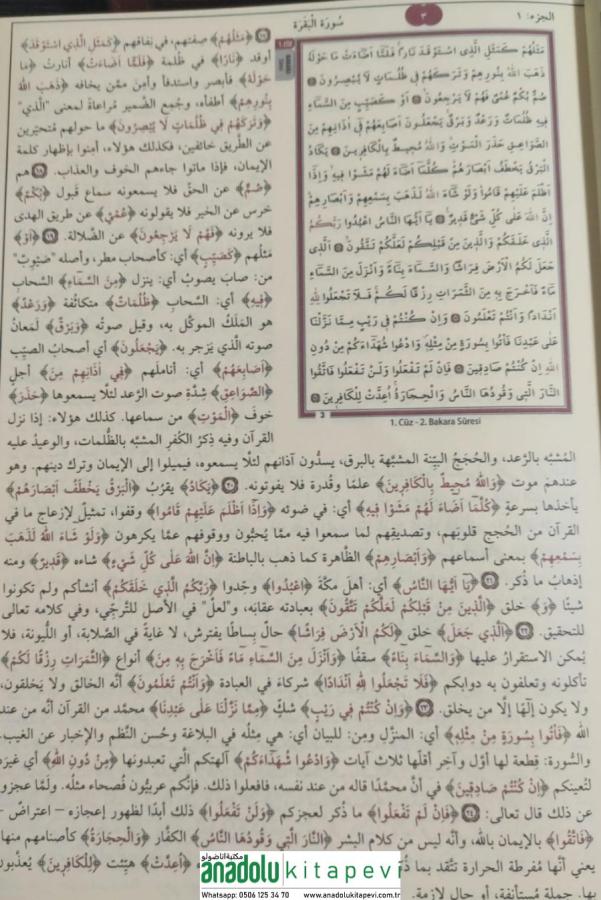 الجزء: ١
٣
سُورَةُ الْبَقَرَةِ
مَثَلُهُمْ كَمَثَلِ الَّذِي اسْتَوْقَدَ نَارًا فَلَمَّا أَضَاءَتْ مَا حَوْلَهُ
ذَهَبَ اللهُ بِنُورِهِمْ وَتَرَكَهُمْ فِي ظُلُمَاتٍ لَا يُبْصِرُونَ
صُمٌّ بُكْمٌ عُمْيٌ فَهُمْ لَا يَرْجِعُونَ أَوْ كَصَيِّبٍ مِنَ السَّمَاءِ
فِيهِ ظُلُمَاتٌ وَرَعْدٌ وَبَرْقٌ يَجْعَلُونَ أَصَابِعَهُمْ فِي آذَانِهِمْ مِنَ
الصَّوَاعِقِ حَذَرَ الْمَوْتِ وَاللهُ مُحِيطٌ بِالْكَافِرِينَ يَكَادُ
الْبَرْقُ يَخْطَفُ أَبْصَارَهُمْ كُلَّمَا أَضَاءَ لَهُمْ مَشَوْا فِيهِ وَإِذَا
أَظْلَمَ عَلَيْهِمْ قَامُوا وَلَوْ شَاءَ اللهُ لَذَهَبَ بِسَمْعِهِمْ وَأَبْصَارِهِمْ
إِنَّ اللهَ عَلَى كُلِّ شَيْءٍ قَدِيرٌ يَا أَيُّهَا النَّاسُ اعْبُدُوا رَبَّكُمُ
الَّذِي خَلَقَكُمْ وَالَّذِينَ مِنْ قَبْلِكُمْ لَعَلَّكُمْ تَتَّقُونَ الَّذِي
جَعَلَ لَكُمُ الْأَرْضَ فِرَاشًا وَالسَّمَاءَ بِنَاءً وَأَنْزَلَ مِنَ السَّمَاءِ
مَاءً فَأَخْرَجَ بِهِ مِنَ الثَّمَرَاتِ رِزْقًا لَكُمْ فَلَا تَجْعَلُوا لِلهِ
أَنْدَادًا وَأَنْتُمْ تَعْلَمُونَ وَإِنْ كُنْتُمْ فِي رَيْبٍ مِمَّا نَزَّلْنَا
عَلَى عَبْدِنَا فَأْتُوا بِسُورَةٍ مِنْ مِثْلِهِ وَادْعُوا شُهَدَاءَكُمْ مِنْ دُونِ
اللهِ إِنْ كُنْتُمْ صَادِقِينَ فَإِنْ لَمْ تَفْعَلُوا وَلَنْ تَفْعَلُوا فَاتَّقُوا
النَّارَ الَّتِي وَقُودُهَا النَّاسُ وَالْحِجَارَةُ أُعِدَّتْ لِلْكَافِرِينَ
3
1. Cüz - 2. Bakara Sûresi
﴿مَثَلُهُمْ﴾ صفتهم، في نِفاقهم ﴿كَمَثَلِ الَّذِي اسْتَوْقَدَ﴾
أوقد ﴿نَارًا﴾ في ظلمة ﴿فَلَمَّا أَضَاءَتْ﴾ أنارتْ ﴿مَا
حَوْلَهُ﴾ فأبصر واستدفأ وأمِنَ ممَّن يخافه ﴿ذَهَبَ اللهُ
بِنُورِهِمْ﴾ أطفأه، وجُمع الضَّمير مُراعاةً لمعنى "الَّذي"
﴿وَتَرَكَهُمْ فِي ظُلُمَاتٍ لَا يُبْصِرُونَ﴾ ما حولهم مُتحيّرين
عن الطَّريق خائفين، فكذلك هؤلاء، أمِنوا بإظهار كلمة
الإيمان، فإذا ماتوا جاءهم الخوف والعذاب. ١٨ هم
﴿صُمٌّ﴾ عن الحقّ فلا يسمعونه سماع قبول ﴿بُكْمٌ﴾
خرس عن الخير فلا يقولونه ﴿عُمْيٌ﴾ عن طريق الهدى
فلا يرونه ﴿فَهُمْ لَا يَرْجِعُونَ﴾ عن الضَّلالة. ١٩ ﴿أَوْ﴾
مَثَلُهم ﴿كَصَيِّبٍ﴾ أي: كأصحاب مطر، وأصله "صَيْوِبٌ"
من: صابَ يصوبُ أي: ينزل ﴿مِنَ السَّمَاءِ﴾ السَّحاب
﴿فِيهِ﴾ أي: السَّحابِ ﴿ظُلُمَاتٌ﴾ متكاثفة ﴿وَرَعْدٌ﴾
هو المَلَكُ الموكَّل به، وقيل صوتُه ﴿وَبَرْقٌ﴾ لَمَعانُ
صوته الَّذي يَزجر به. ﴿يَجْعَلُونَ﴾ أي أصحابُ الصَّيِّب
﴿أَصَابِعَهُمْ﴾ أي: أناملَهم ﴿فِي آذَانِهِمْ مِنَ﴾ أجلِ
﴿الصَّوَاعِقِ﴾ شِدَّةِ صوت الرَّعد لئلّا يسمعوها ﴿حَذَرَ﴾
خوفَ ﴿الْمَوْتِ﴾ من سماعها. كذلك هؤلاء: إذا نزل
القرآن وفيه ذِكرُ الكُفرِ المشبَّه بالظُّلمات، والوعيدُ عليه
المُشبَّه بالرَّعد، والحُجَجُ البيّنة المشبَّهة بالبرق، يسدُّون آذانهم لئلّا يسمعوه، فيميلوا إلى الإيمان وترك دينهم. وهو
عندهم موت ﴿وَاللهُ مُحِيطٌ بِالْكَافِرِينَ﴾ علمًا وقُدرة فلا يفوتونه. ٢٠ ﴿يَكَادُ﴾ يقرُبُ ﴿الْبَرْقُ يَخْطَفُ أَبْصَارَهُمْ﴾
يأخذها بسرعةٍ ﴿كُلَّمَا أَضَاءَ لَهُمْ مَشَوْا فِيهِ﴾ أي: في ضوئه ﴿وَإِذَا أَظْلَمَ عَلَيْهِمْ قَامُوا﴾ وقفوا، تمثيلٌ لإزعاج ما في
القرآن من الحُجج قلوبَهم، وتصديقِهم لما سمعوا فيه ممَّا يُحبُّون ووقوفهم عمَّا يكرهون ﴿وَلَوْ شَاءَ اللهُ لَذَهَبَ
بِسَمْعِهِمْ﴾ بمعنى أسماعهم ﴿وَأَبْصَارِهِمْ﴾ الظَّاهرة كما ذهب بالباطنة ﴿إِنَّ اللهَ عَلَى كُلِّ شَيْءٍ﴾ شاءه ﴿قَدِيرٌ﴾ ومنه
إذهابُ ما ذُكر. ٢١ ﴿يَا أَيُّهَا النَّاسُ﴾ أي: أهلَ مكّةَ ﴿اعْبُدُوا﴾ وحِّدوا ﴿رَبَّكُمُ الَّذِي خَلَقَكُمْ﴾ أنشأكم ولم تكونوا
شيئًا ﴿وَ﴾ خلق ﴿الَّذِينَ مِنْ قَبْلِكُمْ لَعَلَّكُمْ تَتَّقُونَ﴾ بعبادته عقابَه، و"لعلّ" في الأصل للتَّرجّي، وفي كلامه تعالى
للتحقيق. ٢٢ ﴿الَّذِي جَعَلَ﴾ خلق ﴿لَكُمُ الْأَرْضَ فِرَاشًا﴾ حالٌ بِساطًا يفترش، لا غايةً في الصَّلابة، أو اللُّيونة، فلا
يُمكن الاستقرارُ عليها ﴿وَالسَّمَاءَ بِنَاءً﴾ سقفًا ﴿وَأَنْزَلَ مِنَ السَّمَاءِ مَاءً فَأَخْرَجَ بِهِ مِنَ﴾ أنواع ﴿الثَّمَرَاتِ رِزْقًا لَكُمْ﴾
تأكلونه وتعلفون به دوابكم ﴿فَلَا تَجْعَلُوا لِلهِ أَنْدَادًا﴾ شركاءَ في العبادة ﴿وَأَنْتُمْ تَعْلَمُونَ﴾ أنَّه الخالق ولا يَخلقون،
ولا يكون إلٰهًا إلّا من يخلق. ٢٣ ﴿وَإِنْ كُنْتُمْ فِي رَيْبٍ﴾ شكٍّ ﴿مِمَّا نَزَّلْنَا عَلَى عَبْدِنَا﴾ محمَّد من القرآن أنَّه من عند
الله ﴿فَأْتُوا بِسُورَةٍ مِنْ مِثْلِهِ﴾ أي: المنزَّلِ ومن: للبيان أي: هي مِثلُه في البلاغة وحُسن النَّظم والإخبار عن الغيب.
والسُّورة: قِطعة لها أوَّل وآخِر أقلُّها ثلاث آيات ﴿وَادْعُوا شُهَدَاءَكُمْ﴾ آلهتكم الَّتي تعبدونها ﴿مِنْ دُونِ اللهِ﴾ أي غيرَه
لتُعينكم ﴿إِنْ كُنْتُمْ صَادِقِينَ﴾ في أنَّ محمَّدًا قاله من عند نفسه، فافعلوا ذلك. فإنَّكم عربيُّون فُصحاء مثله. ولمَّا عجزوا
عن ذلك قال تعالى: ٢٤ ﴿فَإِنْ لَمْ تَفْعَلُوا﴾ ما ذُكر لعجزكم ﴿وَلَنْ تَفْعَلُوا﴾ ذلك أبدًا لظهور إعجازه – اعتراضٌ –
﴿فَاتَّقُوا﴾ بالإيمان بالله، وأنَّه ليس من كلام البشر ﴿النَّارَ الَّتِي وَقُودُهَا النَّاسُ﴾ الكفَّار ﴿وَالْحِجَارَةُ﴾ كأصنامهم منها
يعني أنَّها مُفرطة الحرارة تتَّقد بما ﴿أُعِدَّتْ﴾ هيّئت ﴿لِلْكَافِرِينَ﴾ يُعذَّبون
بها. جملة مُستأنَفة، أو حال لازمة.
مكتبة اناضولو
anadolu kitapevi
Whatsapp: 0506 125 34 70 www.anadolukitapevi.com.tr